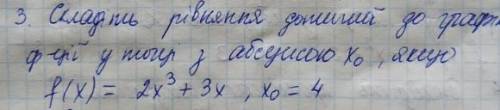 3. Складіть рівняння дотичної до граф
ф-ції у точці з абсцисою x₀, якщо
f(x) = 2x³ + 3x , x₀ = 4